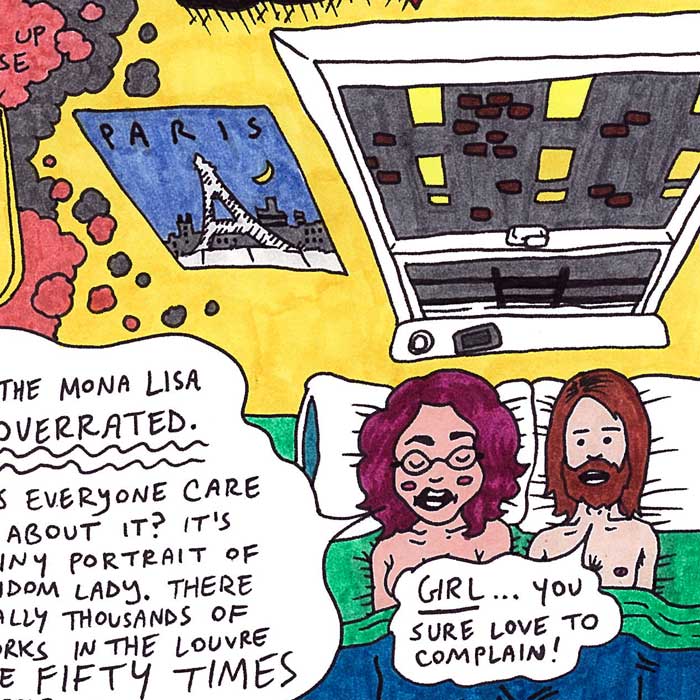 UP
SE
PARIS
THE MONA LISA
OVERRATED.
S EVERYONE CARE
ABOUT IT? IT'S
INY PORTRAIT OF
NDOM LADY. THERE
ALLY THOUSANDS OF
ORKS IN THE LOUVRE
E FIFTY TIMES
GIRL... YOU
SURE LOVE TO
COMPLAIN!